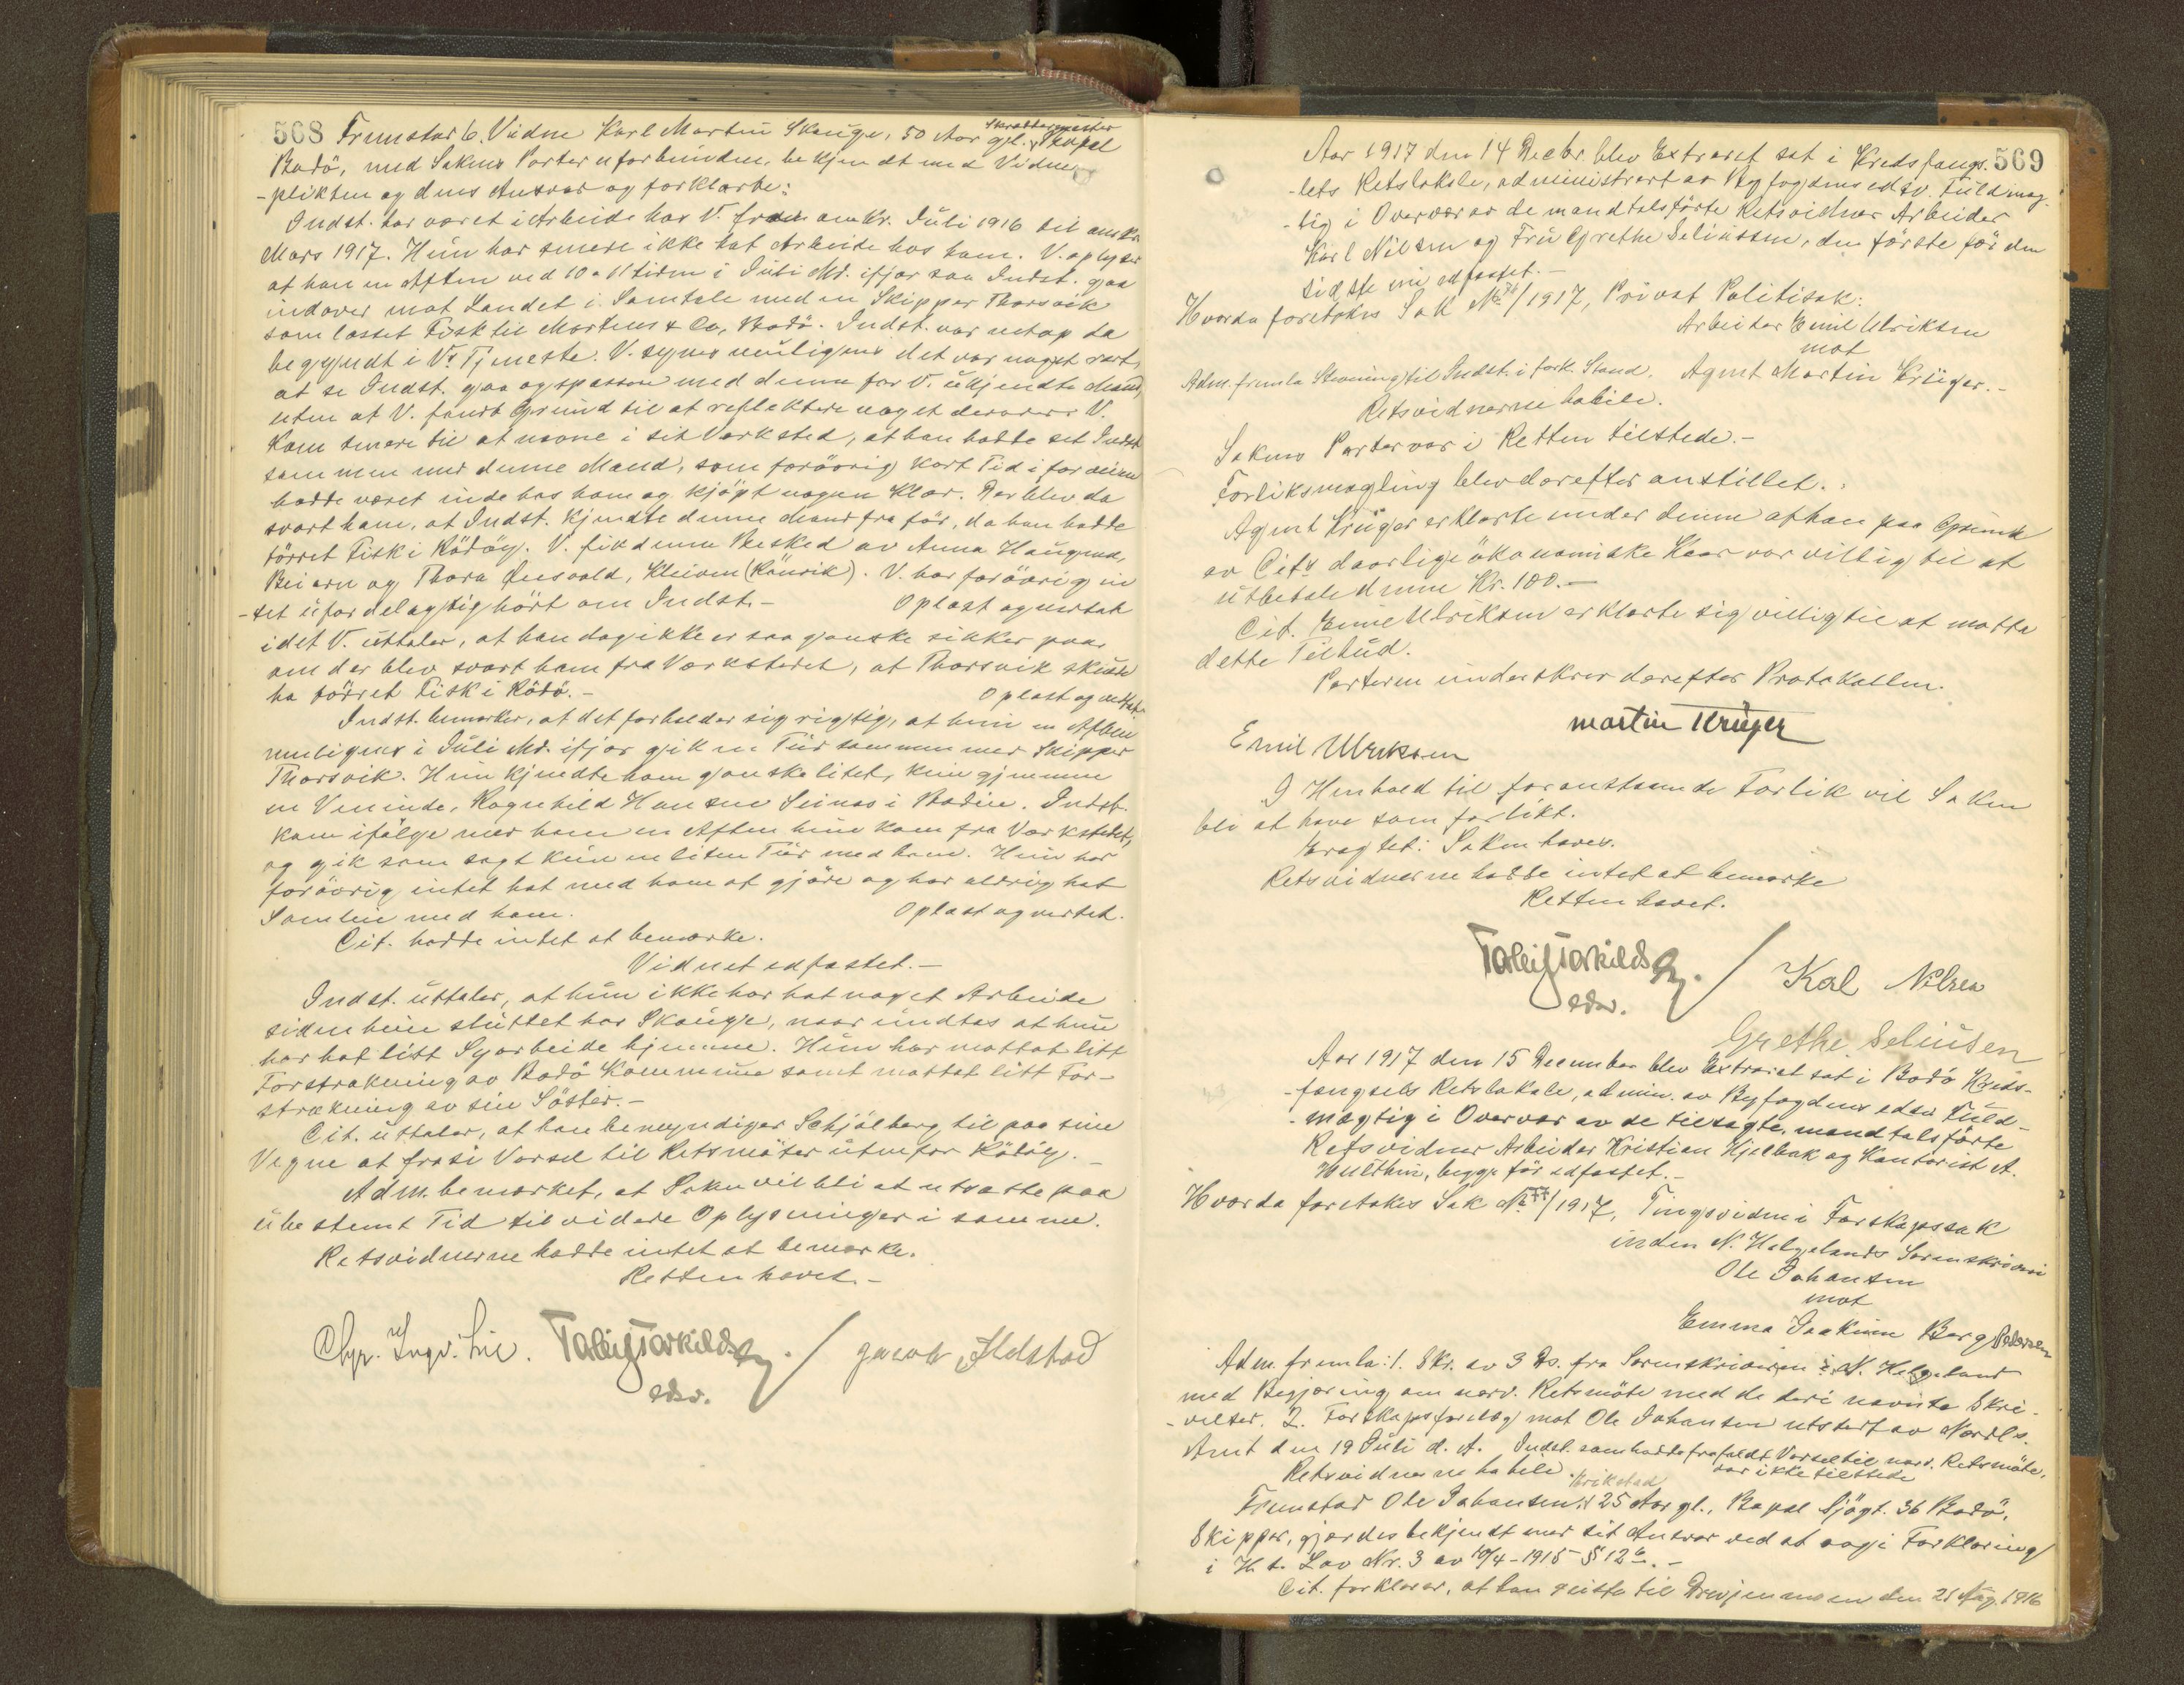 568 Fremstod 6. Vidne Karl Martin Skauge, 50 Aar gl. Skræddermester
Bodö, med Sakens Parter uforbunden, bekjendt med Vidne-
-plikten og dens Ansvar og forklarte:
Indst. har været i Arbeide hos V. fra omkr. Juli 1916 til omkr.
Mars 1917. Hun har senere ikke hat Arbeide hos ham. V. oplyser
at han en Aften ved 10 a 11 tiden i Juli Md. ifjor saa Indst. gaa
indover mot Landet i Samtale med en Skipper Thorsvik
som losset Fisk til Mortens & Co, Bodö. Indst. var netop da
begyndt i V's Tjeneste. V. synes muligens det var noget rart,
at se Indst. gaa og spassere med denne for V. ukjendte Mand,
uten at V. fandt Grund til at reflektere noget derover. V.
kom senere til at nævne i sit Værksted, at han hadde set Indst.
sammen med denne Mand, som forövrig kort Tid i forveien
hadde været inde hos ham og kjöpt nogen Klær. Der blev da
svart ham, at Indst. kjendte denne Mand fra för, da hun hadde
törret Fisk i Rödöy. V. fik denne Besked av Anna Haugmo,
Beiarn og Thora, Kleiven (Rönvik). V. har forövrig in
-tet ufordelagtig hört om Indst. - Oplæst og vedtat
idet V. uttaler, at han dog ikke er saa ganske sikker paa,
om der blev svart ham fra Værkstedet, at Thorsvik skulde
ha törret Fisk i Rödö. - Oplæst og vedtat.
Indst. bemerker, at det forholder sig rigtig, at hun en Aften
muligens i Juli Md. ifjor gik en Tur sammen med Skipper
Thorsvik. Hun kjendte ham ganske litet, kun gjennem
en Veninde, Ragnhild Hansen Seines i Bodin. Indst.
kom ifölge med ham en Aften hun kom fra Værkstedet,
og gik som sagt kun en liten Tur med ham. Hun har
forövrig intet hat med ham at gjöre og har aldrig hat
Samleie med ham. Oplæst og vedtat.
Cit. hadde intet at bemærke.
Vidnet edfæstet. -
Indst. uttaler, at hun ikke har hat noget Arbeide
siden hun sluttet hos Skauge, naar undtas at hun
har hat litt Syarbeide hjemme. Hun har mottat litt
Forstrækning av Bodö Kommune samt mottat litt For-
strækning av sin Söster. -
Cit. uttaler, at han bemyndiger Schjölberg til paa sine
Vegne at frasi Varsel til Retsmöter utenfor Rödöy. -
Adm. bemerket, at Saken vil bli at utsætte paa
ubestemt Tid til videre Oplysninger i samme.
Retsvidnerne hadde intet at bemærke.
Retten hævet. -
Chr. Ingv. Lie. Tallejf Torkilds / Jacob Ildstad
edsv.
569
Aar 1917 den 14 Decbr. blev Extraret sat i Kredsfængs-
-lets Retslokale, administrert av Byfogdens edsv. Fuldmæg-
-tig i Overvær av de mandtalsförte Retsvidner Arbeider
Karl Nilsen og Fru Grethe Seliussen, den förste för den
sidste nu edfæstet. -
Hvorda foretokes Sak No 76/1917, Privat Politisak:
Arbeider Emil Ulriksen
mot
Adm. fremla Stevning til Indst. i fork. Stand. Agent Martin Krüger. -
Retsvidnerne habile.
Sakens Parter var i Retten tilstede. -
Forliksmægling blev derefter anstillet.
Agent Krüger erklærte under denne at han paa Grund
av Cits daarlige ökonomiske Kaar var villig til at
utbetale denne Kr. 100. -
Cit. Emil Ulriksen erklærte sig villig til at motta
dette Tilbud.
Parterne underskrev derefter Protokollen.
Martin Krüger
Emil Ulriksen
I Henhold til foranstaaende Forlik vil Saken
bli at hæve som forlikt.
Eragtet: Saken hæves.
Retsvidnerne hadde intet at bemærke
Retten hævet.
Tallejf Torkilds / Karl Nilsen
edsv.
Grethe Seliusen
Aar 1917 den 15 December blev Extraret sat i Bodö Kreds-
-fængsels Retslokale, admin. av Byfogdens edsv. Fuld-
-mægtig i Overvær av de tilsagte, mandtalsförte
Retsvidner Arbeider Kristian Hjelbak og Kontorist A.
Hulthin, begge för edfæstet. -
Hvorda foretokes Sak No 77/1917, Tingsvidne i Farskapssak
inden N. Helgelands Sorenskriveri
Ole Johansen
mot
Emma Joakime Berg Pedersen
Adm. fremla: 1. Skr. av 3 ds. fra Sorenskriveren i N. Helgeland
med Begjæring om nærv. Retsmöte med de deri nævnte Skri-
-velser. 2. Farskapsforelæg mot Ole Johansen utstedt av Nordl's
Amt den 19 Juli d. A. Indst. som hadde frafaldt Varsel til nærv. Retsmöte,
var ikke tilstede
Retsvidnerne habile.
Fremstod Ole Johansen Erikstad 25 Aar gl., Bopæl Sjögt. 36 Bodö,
Skipper, gjordes bekjendt med sit Ansvar ved at avgi Forklaring
i H. t. Lov Nr. 3 av 10/4-1915 § 12. -
Cit. forklarer, at han reiste til Drevjemoen den 21 Aug. 1916